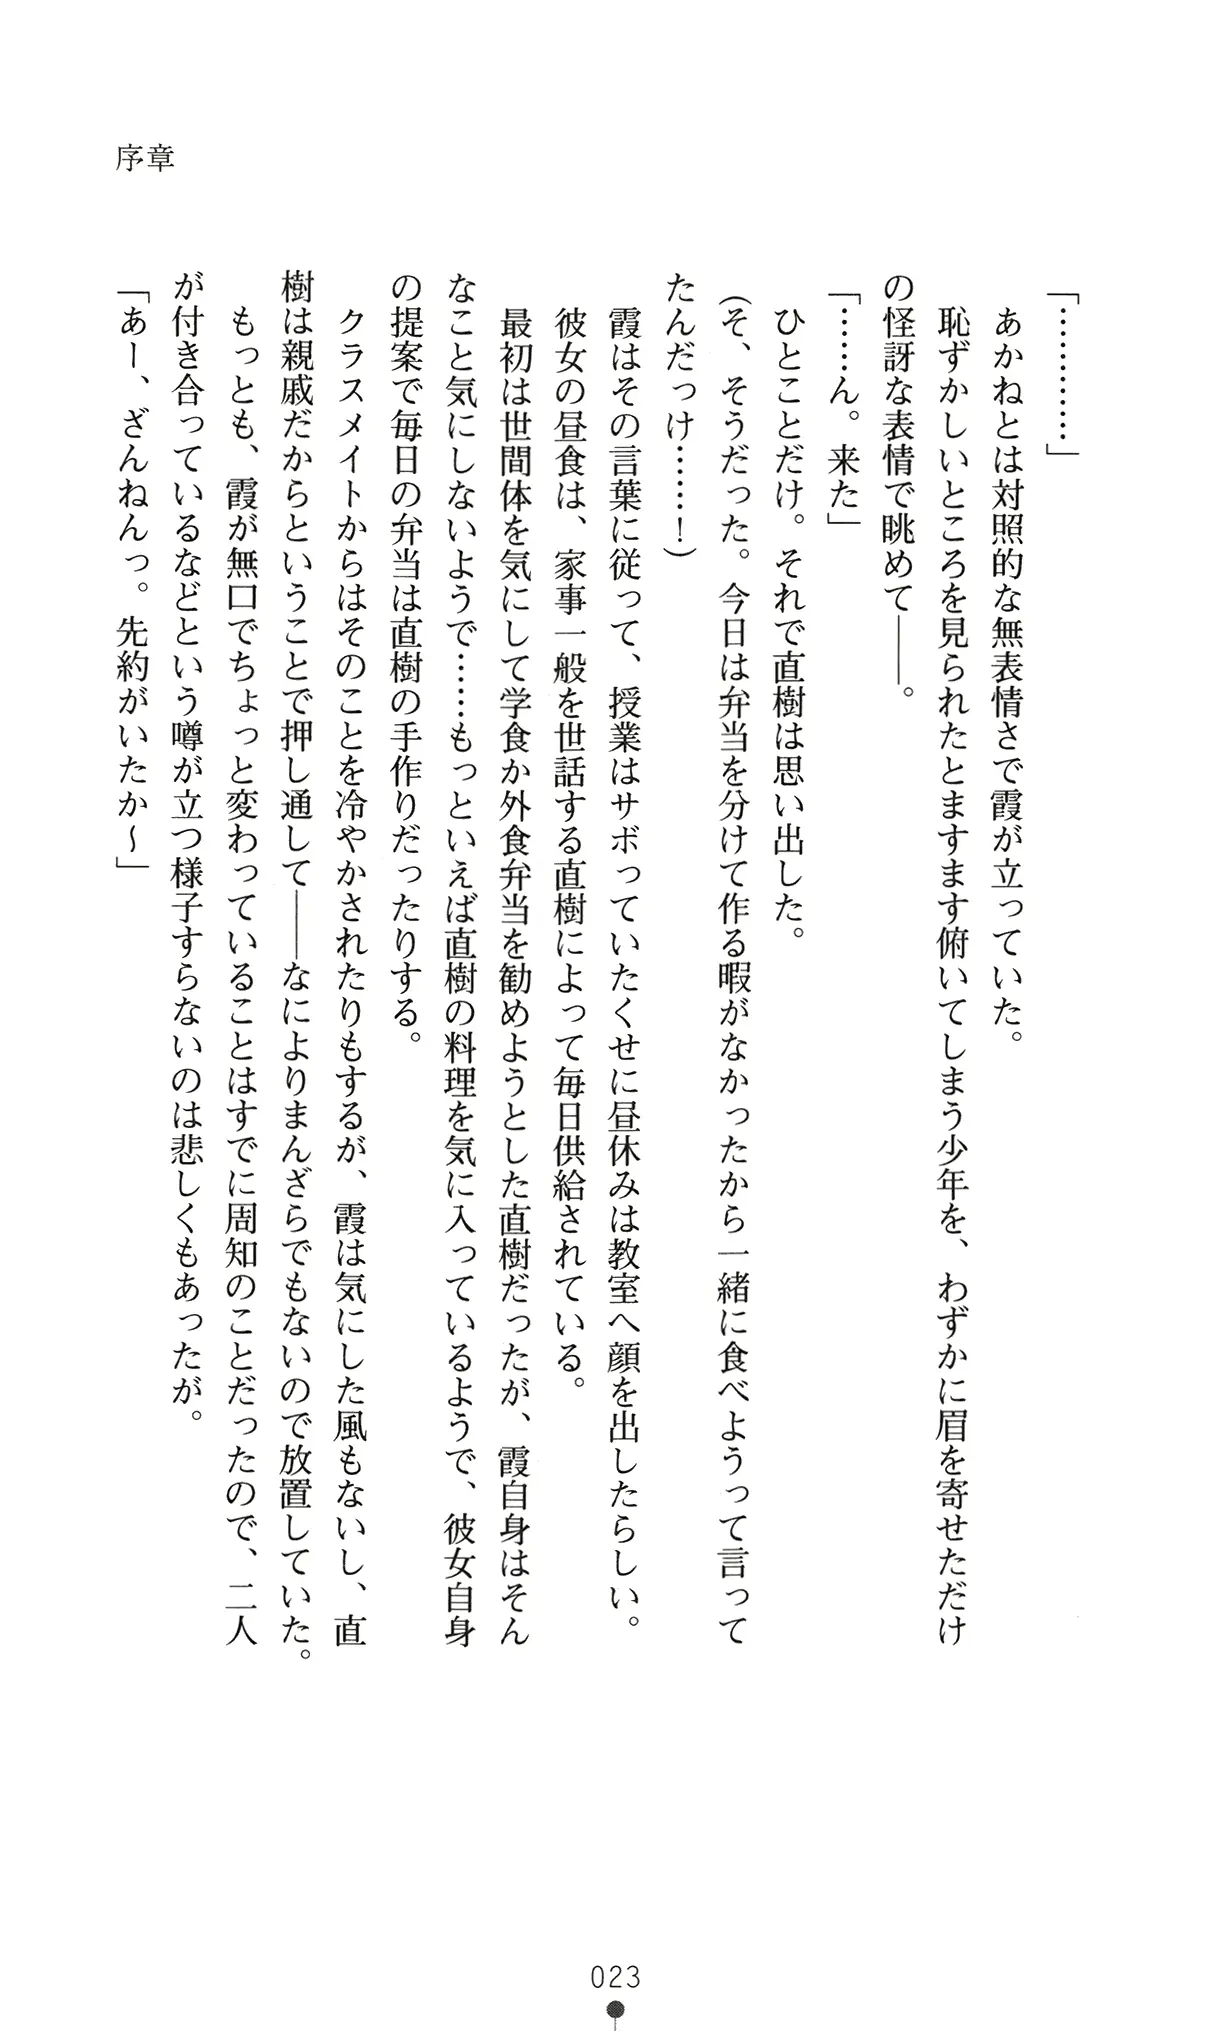 序章
「…………」
　あかねとは対照的な無表情さで霞が立っていた。
　恥ずかしいところを見られたとますます俯いてしまう少年を、わずかに眉を寄せただけ
の怪訝な表情で眺めて――。
「……ん。来た」
　ひとことだけ。それで直樹は思い出した。
（そ、そうだった。今日は弁当を分けて作る暇がなかったから一緒に食べようって言って
たんだっけ……！）
　霞はその言葉に従って、授業はサボっていたくせに昼休みは教室へ顔を出したらしい。
　彼女の昼食は、家事一般を世話する直樹によって毎日供給されている。
　最初は世間体を気にして学食か外食弁当を勧めようとした直樹だったが、霞自身はそん
なこと気にしないようで……もっといえば直樹の料理を気に入っているようで、彼女自身
の提案で毎日の弁当は直樹の手作りだったりする。
　クラスメイトからはそのことを冷やかされたりもするが、霞は気にした風もないし、直
樹は親戚だからということで押し通して――なによりまんざらでもないので放置していた。
　もっとも、霞が無口でちょっと変わっていることはすでに周知のことだったので、二人
が付き合っているなどという噂が立つ様子すらないのは悲しくもあったが。
「あー、ざんねんっ。先約がいたか～」
023